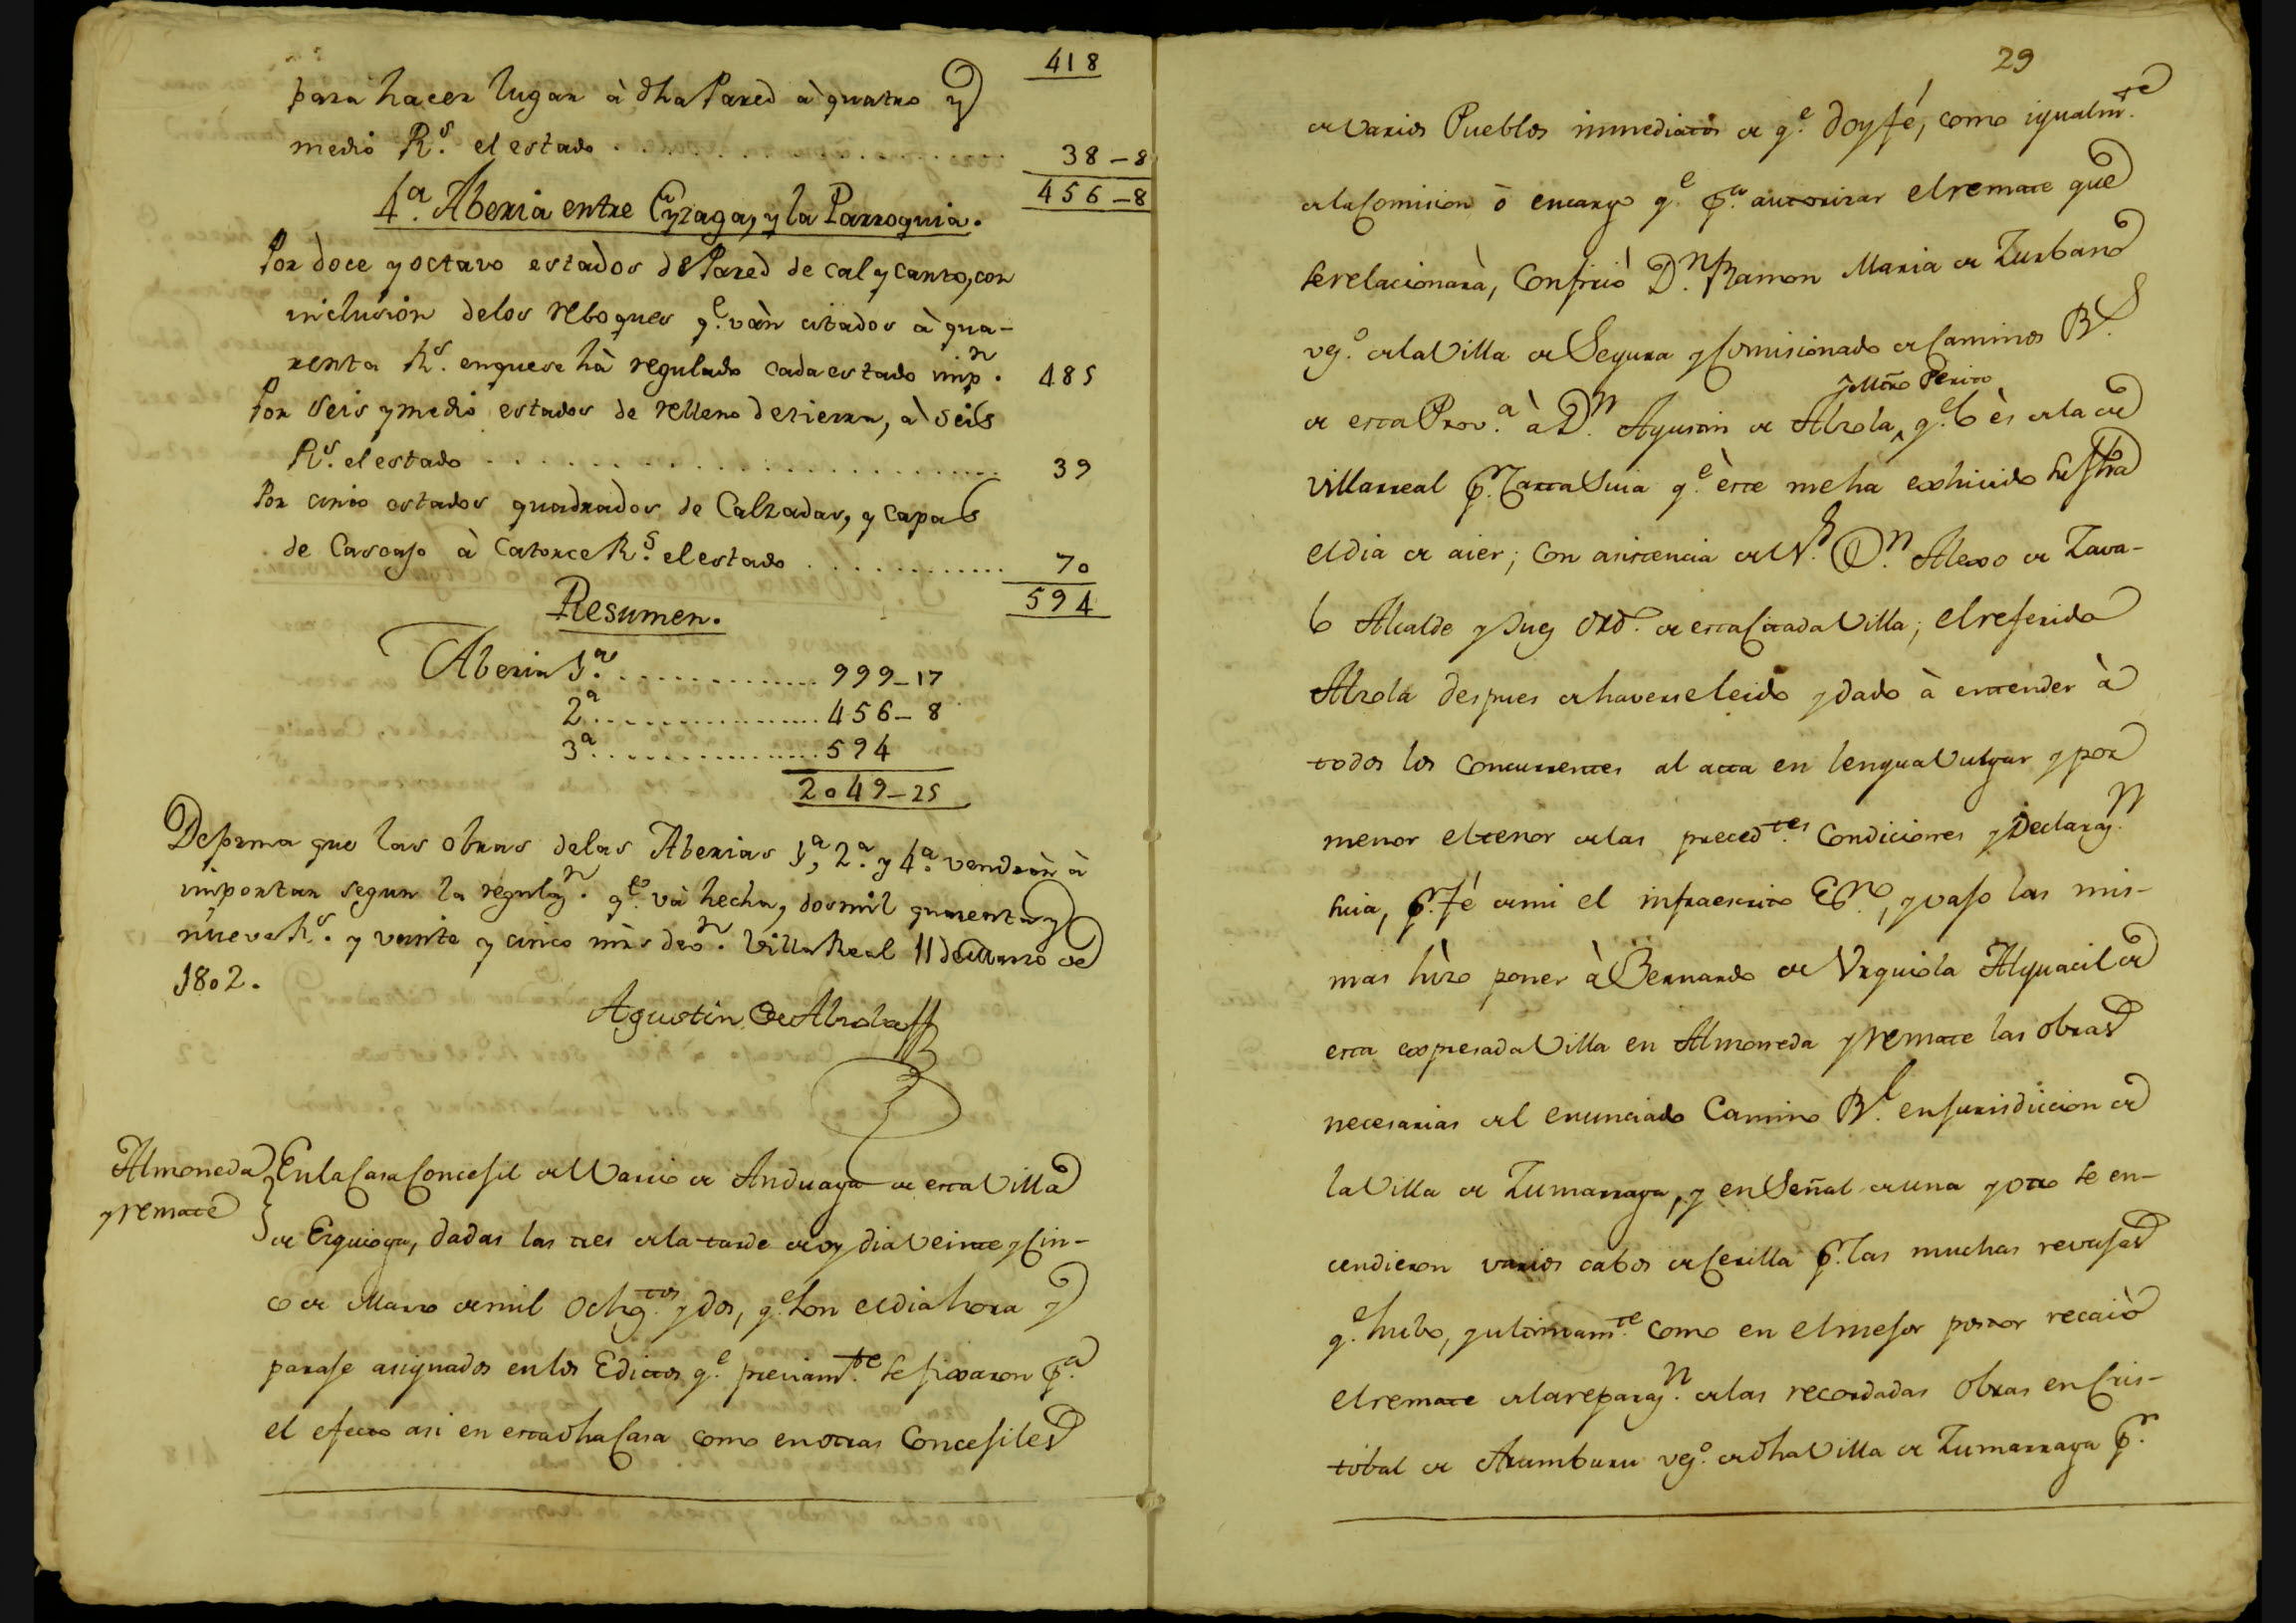 418
para hacer lugar à dha Pared à quatro y
medio R.s el estado . . . . . . . . . . 38-8
456-8
4.a Aberia entre Eyzaga, y la Parroquia.
Por doce y octavo estados de Pared de cal y canto, con
inclusion delos reboques q.e vàn citados à qua-
renta R.s enquese hà regulado cada estado imp.n 485
Por seis y medio estados de relleno detierra, à seis
R.s el estado . . . . . . . . . . 39
Por cinco estados quadrados de Calzadas, y capas
de Cascajo à Catorce R.s el estado . . . . . . . . . . 70
594
Resumen.
Aberia 1.a . . . . . . . . . . 999-17
2.a . . . . . . . . . . 456-8
3.a . . . . . . . . . . 594
2049-25
Deforma que las obras delas Aberias 1.a, 2.a y 4.a vendràn à
importar segun la regulaz.n q.e và hecha, dosmil quarenta y
nueve R.s y veinte y cinco mrs de v.n Villa Real 11 de Marzo de
1802.
Agustin de Alzola
Almoneda
y remate
En la Casa Concejil del Varrio de Anduaga de esta Villa
de Ezquioga, dadas las tres de la tarde de oy dia veinte y cin-
co de Marzo de mil ochoz.tos y dos, q.e son el dia hora y
paraje asignados en los Edictos q.e previam.te se fixaron p.a
el efecto asi en esta dha Casa como en otras Concejiles
29
de varios Pueblos inmediatos de q.e doy fé, como igualm.te
de la Comision ò encargo q.e p.a autorizar el remate que
se relacionarà, Confirió D.n Ramon Maria de Zurbano
vez.o de la Villa de Segura y Comisionado de Caminos R.s
de esta Prov.a à D.n Agustin de Alzola, q.e lo ès de la de
y Mtro Perito
Villarreal p.r Carta suia q.e èste me ha exhivido su fha
el dia de aier; con asistencia del S.r D.n Alexo de Zava-
lo Alcalde y Juez ord.o de esta citada Villa; el referido
Alzola despues de haverse leido y dado à entender à
todos los concurrentes al acta en lengua vulgar y por
menor el tenor de las preced.tes Condiciones y Declaraz.n
suia, p.r fé de mi el infraescrito Es.no, y vajo las mis-
mas hizo poner à Bernardo de Urquiola Alguacil de
esta expresada Villa en Almoneda y remate las obras
necesarias del enunciado Camino R.l en jurisdiccion de
la Villa de Zumarraga, y en señal de una y otro se en-
cendieron varios cabos de Cerilla p.r las muchas revajas
q.e hubo, y ultimam.te como en el mejor postor recaiò
el remate de la reparaz.n de las recordadas obras en Cris-
tobal de Aramburu vez.o de dha Villa de Zumarraga p.r